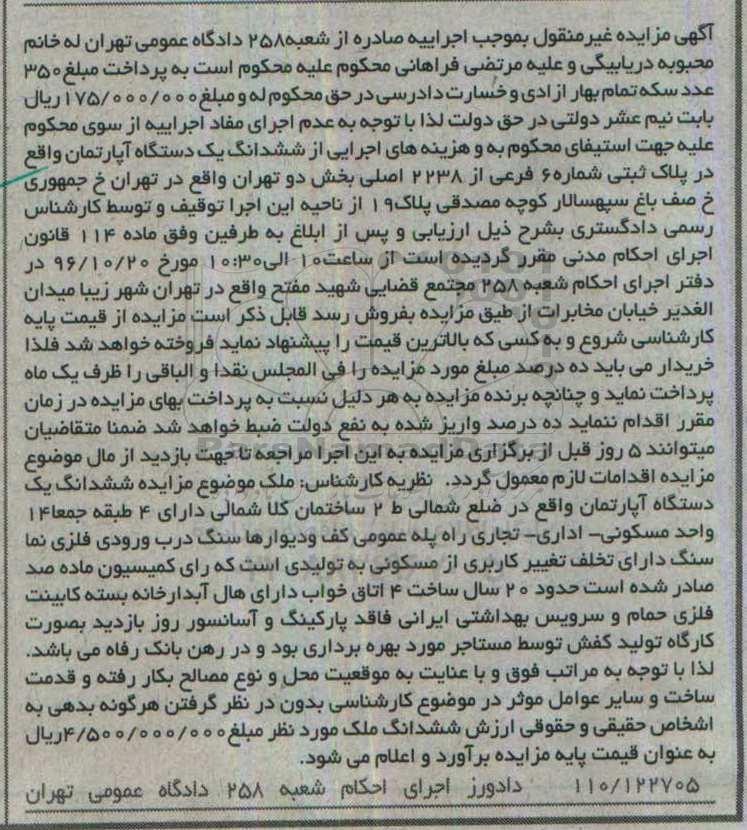 آگهی مزایده غیرمنقول بموجب اجراییه صادره از شعبه۲۵۸ دادگاه عمومی تهران له خانم
محبوبه دریابیگی و علیه مرتضی فراهانی محکوم علیه محکوم است به پرداخت مبلغ۳۵۰
عدد سکه تمام بهار ازادی و خسارت دادرسی در حق محکوم له و مبلغ۱۷۵/۰۰۰/۰۰۰ریال
بابت نیم عشر دولتی در حق دولت لذا با توجه به عدم اجرای مفاد اجراییه از سوی محکوم
علیه جهت استیفای محکوم به و هزینه های اجرایی از ششدانگ یک دستگاه آپارتمان واقع
در پلاک ثبتی شماره۶ فرعی از ۲۲۳۸ اصلی بخش دو تهران واقع در تهران خ جمهوری
خ صف باغ سپهسالار کوچه مصدقی پلاک۱۹ از ناحیه این اجرا توقیف و توسط کارشناس
رسمی دادگستری بشرح ذیل ارزیابی و پس از ابلاغ به طرفین وفق ماده ۱۱۴ قانون
اجرای احکام مدنی مقرر گردیده است از ساعت۱۰ الی۱۰:۳۰ مورخ ۹۶/۱۰/۲۰ در
دفتر اجرای احکام شعبه ۲۵۸ مجتمع قضایی شهید مفتح واقع در تهران شهر زیبا میدان
الغدیر خیابان مخابرات از طیق مزایده بفروش رسد قابل ذکر است مزایده از قیمت پایه
کارشناسی شروع و به کسی که بالاترین قیمت را پیشنهاد نماید فروخته خواهد شد فلذا
خریدار می باید ده درصد مبلغ مورد مزایده را فی المجلس نقدا و الباقی را ظرف یک ماه
پرداخت نماید و چنانچه برنده مزایده به هر دلیل نسبت به پرداخت بهای مزایده در زمان
مقرر اقدام ننماید ده درصد واریز شده به نفع دولت ضبط خواهد شد ضمنا متقاضیان
میتوانند ۵ روز قبل از برگزاری مزایده به این اجرا مراجعه تا جهت بازدید از مال موضوع
مزایده اقدامات لازم معمول گردد. نظریه کارشناس: ملک موضوع مزایده ششدانگ یک
دستگاه آپارتمان واقع در ضلع شمالی ط ۲ ساختمان کلا شمالی دارای ۴ طبقه جمعا۱۴
واحد مسکونی- اداری- تجاری راه پله عمومی کف ودیوارها سنگ درب ورودی فلزی نما
سنگ دارای تخلف تغییر کاربری از مسکونی به تولیدی است که رای کمیسیون ماده صد
صادر شده است حدود ۲۰ سال ساخت ۴ اتاق خواب دارای هال آبدارخانه بسته کابینت
فلزی حمام و سرویس بهداشتی ایرانی فاقد پارکینگ و آسانسور روز بازدید بصورت
کارگاه تولید کفش توسط مستاجر مورد بهره برداری بود و در رهن بانک رفاه می باشد.
لذا با توجه به مراتب فوق و با عنایت به موقعیت محل و نوع مصالح بکار رفته و قدمت
ساخت و سایر عوامل موثر در موضوع کارشناسی بدون در نظر گرفتن هرگونه بدهی به
اشخاص حقیقی و حقوقی ارزش ششدانگ ملک مورد نظر مبلغ۴/۵۰۰/۰۰۰/۰۰۰ریال
به عنوان قیمت پایه مزایده برآورد و اعلام می شود.
۱۱۰/۱۲۲۷۰۵ دادورز اجرای احکام شعبه ۲۵۸ دادگاه عمومی تهران